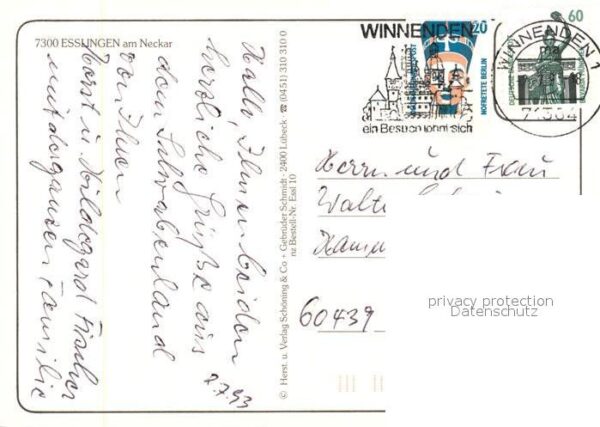 7300 ESSLINGEN am Neckar
Hallo, Ihnen beiden
herzliche Grüße aus
dem Schwabenland
von Ihren
Horst u. Hildegard Fischer
mit der ganzen Familie
2.7.93
© Herst. u. Verlag Schöning & Co + Gebrüder Schmidt · 2400 Lübeck · ☎ (04 51) 310 310 0
nz Bestell-Nr. Essl 10
WINNENDEN
ein Besuch lohnt sich
20
NOFRETETE BERLIN
60
WINNENDEN 1
71364
Herrn und Frau
60439
privacy protection
Datenschutz